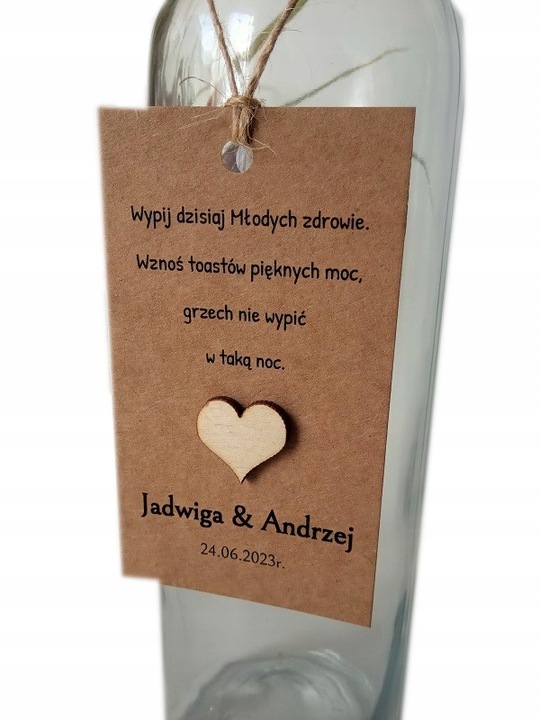 Wypij dzisiaj Młodych zdrowie.
Wznoś toastów pięknych moc,
grzech nie wypić
w taką noc.
Jadwiga & Andrzej
24.06.2023r.